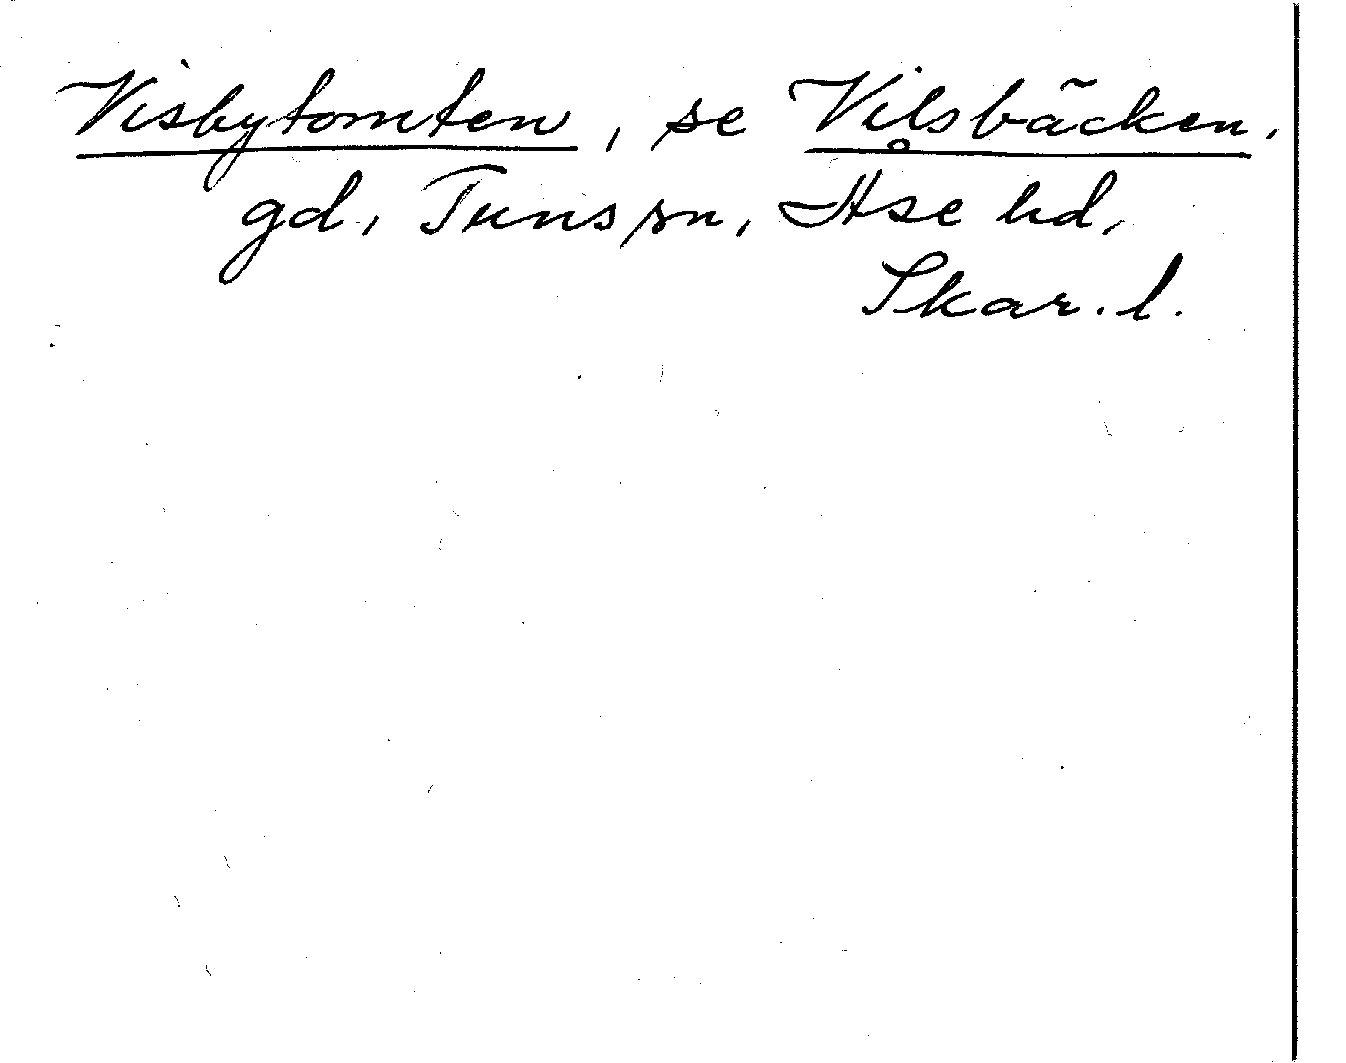 Visbytomten, se Vilsbäcken,
gd, Tuns sn, Åse hd,
Skar. l.